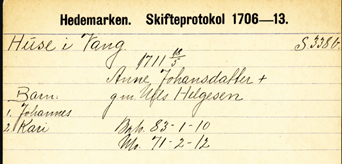 Hedemarken. Skifteprotokol 1706—13.
Huse i Vang S 338b.
1711 18/5
Anne Johansdatter +
gm. Ufls Helgesen
Barn:
1. Johannes
2. Kari Bgb. 83-1-10
Mo. 71-2-12